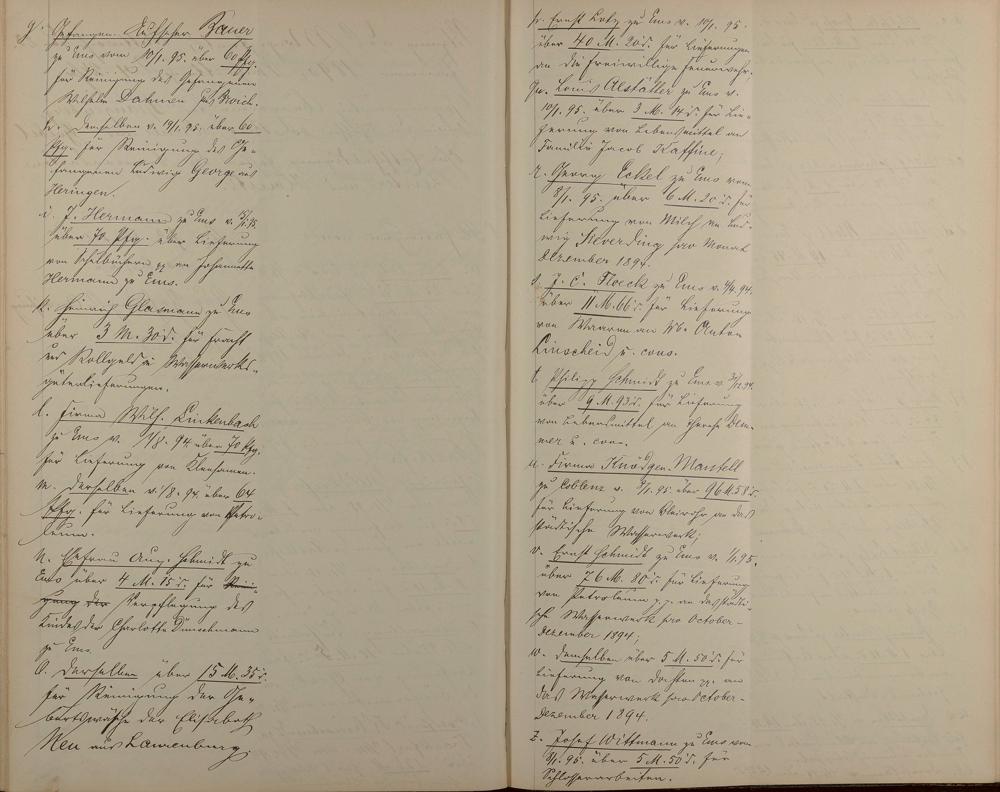 g. Gefangen-Aufseher Bauer
zu Ems vom 10/1. 95 über 60 Pfg.
für Reinigung des Gefangenen
Wilhelm Dahmen aus
h. derselben v. 19/1. 95. über 60
Pfg. für Reinigung des Ge-
fangenen Ludwig George aus
Heringen.
i. J. Hermann zu Ems v.
über 70 Pfg. über Lieferung
von Schulbüchern pp an Johannette
Hermann zu Ems.
k. Heinrich Glasmann zu Ems
über 3 M. 30 d. für Fracht
und Rollgeld Wasserwerks-
güterlieferungen.
l. Firma Wilh. Linkenbach
zu Ems v. 1/8. 94 über 70 Pfg.
für Lieferung von Kleesamen.
m. derselben v. 1/8. 94. über 64
Pfg. für Lieferung von Petro-
leum.
n. Ehefrau Aug. Schmidt zu
Ems über 4 M. 15 d. für Rein-
gung der Verpflegung des
Kindes der Charlotte
zu Ems.
o. derselben über 15 M. 35 d.
für Reinigung der Ge-
burtswäsche der Elisabeth
Neu aus Laurenburg.
p. Ernst Lotz zu Ems v. 10/1. 95.
über 40 M. 20 d. für Lieferungen
an die freiwillige Feuerwehr.
qu. Louis Alstätter zu Ems v.
10/1. 95 über 3 M. 14 d. für Lie-
ferung von Lebensmittel an
Familie Jacob Kaffine;
r. Georg Eckel zu Ems vom
8/1. 95. über 6 M. 20 d. für
Lieferung von Milch an Lud-
wig Sieverding pro Monat
Dezember 1894.
s. J. C. Floeck zu Ems v. 94.
über 11 M. 66 d. für Lieferung
von Waaren an Ww. Anton
Linscheid u. cons.
t. Philipp Schmidt zu Ems v.
über 9 M. 93 d. für Lieferung
von Lebensmittel an Therese Dem-
mer u. cons.
u. Firma Knödgen-Mantell
zu Coblenz v. 3/1. 95 über 96 M. 58 d.
für Lieferung von Bleirohr an das
städtische Wasserwerk;
v. Ernst Schmidt zu Ems v. 1/1. 95.
über 76 M. 80 d. für Lieferung
von Petroleum p.p. an das städti-
sche Wasserwerk pro October-
Dezember 1894;
w. demselben über 5 M. 50 d. für
Lieferung von Dochten pp. an
das Wasserwerk pro October-
Dezember 1894.
z. Josef Wittmann zu Ems vom
95. über 5 M. 50 d. für
Schlosserarbeiten.